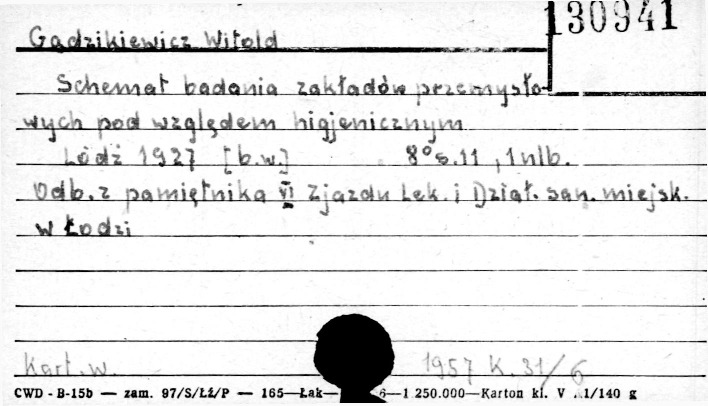 130941
Gądzikiewicz Witold
Schemat badania zakładów przemysło-
wych pod względem higjenicznym
Łódź 1927 [b.w.] 8° s.11, 1 nlb.
Odb. z pamiętnika VI Zjazdu Lek. i Dział. san. miejsk.
w Łodzi
Kart. w. 1957 K. 31/6
CWD - B-15b — zam. 97/S/Łź/P — 165—Łak— 6—1 250.000—Karton kl. V 1/140 g